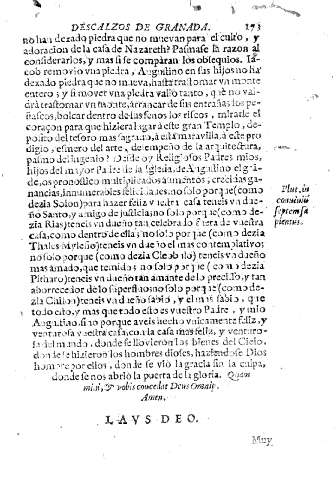 DESCALZOS DE GRANADA. 173
no han dexado piedra que no muevan para el culto, y
adoracion de la casa de Nazareth? Pasmase la razon al
considerarlos, y mas si se comparan los obsequios. Ia-
cob removio vna piedra, Augustino en sus hijos no ha
dexado piedra que no mueva, hasta trastornar vn monte
entero; y si mover vna piedra valio tanto, què no val-
drà trastornar vn monte, arrancar de sus entrañas los pe-
ñascos, bolcar dentro de sus senos los riscos, mirarle el
coraçon para que hiziera lugar à este gran Templo, de-
posito del tesoro mas sagrado, à esta maravilla, à este pro-
digio, esmero del arte, desempeño de la arquitectura,
pasmo del ingenio? Desde oy Religiosos Padres mios,
hijos del mayor Padre de la Iglesia, de Augustino el grã-
de, os pronostico multiplicados aumentos, crecidas ga-
nancias, innumerables felicidades, no solo porque (como
dezia Solon) para hazer feliz vuestra casa teneis vn due-
ño Santo, y amigo de justicia; no solo porque (como de-
zia Bias) teneis vn dueño tan celebrado fuera de vuestra
casa, como dentro de ella; no solo porque (como dezia
Thales Mylesio) teneis vn dueño el mas contemplativo;
no solo porque (como dezia Cleobulo) teneis vn dueño
mas amado, que temido; no solo porque (como dezia
Pitharo) teneis vn dueño tan amante de lo preciso, y tan
aborrecedor de lo superfluo; no solo porque (como de-
zia Chilon) teneis vn dueño sabio, y el mas sabio, que
todo esto, y mas que todo esto es vuestro Padre, y mio
Augustino, si no porque aveis hecho vnicamente feliz, y
venturosa vuestra casa, con la casa mas feliz, y venturo-
sa del mundo, donde se llovieron los bienes del Cielo,
donde se hizieron los hombres dioses, haziendose Dios
hombre por ellos, donde se viò la gracia sin la culpa,
donde se nos abriò la puerta de la gloria. Quam
mihi, & vobis concedat Deus Omnip.
Amen.
Plut. in
convivio
septem sa
pientum.
LAVS DEO.
Muy